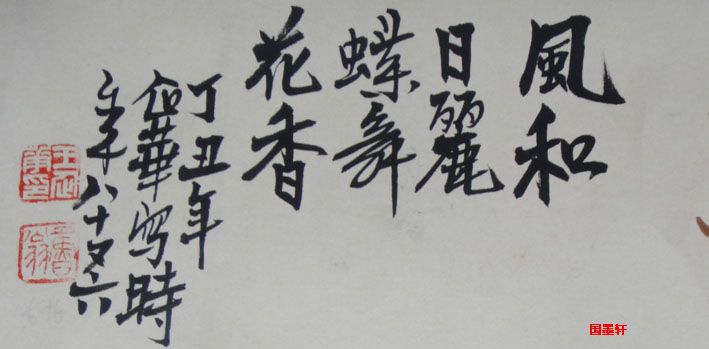 風和
日麗
蝶舞
花香
丁丑年
企華写時
年八十又六
国墨轩